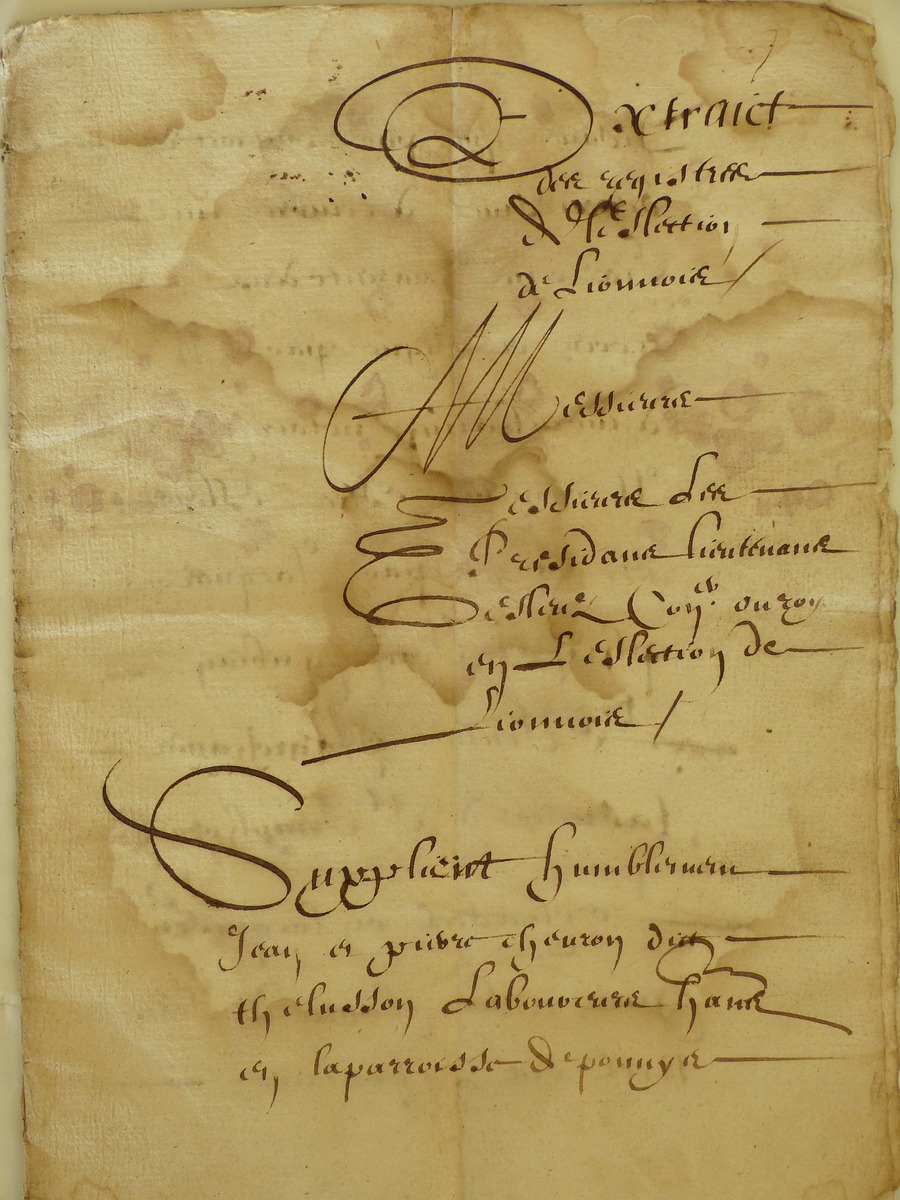 Extraict
des registres
de l'eslection
de Lionnois /
Messieurs
Messieurs Les
Presidans Lieutenans
Esleuz Con.rs du roy
en L eslection de
Lionnois /
Supplient humblemen
Jean et pierre theuron dit
thelusson Laboureurs habns
en la parroisse de pomyes